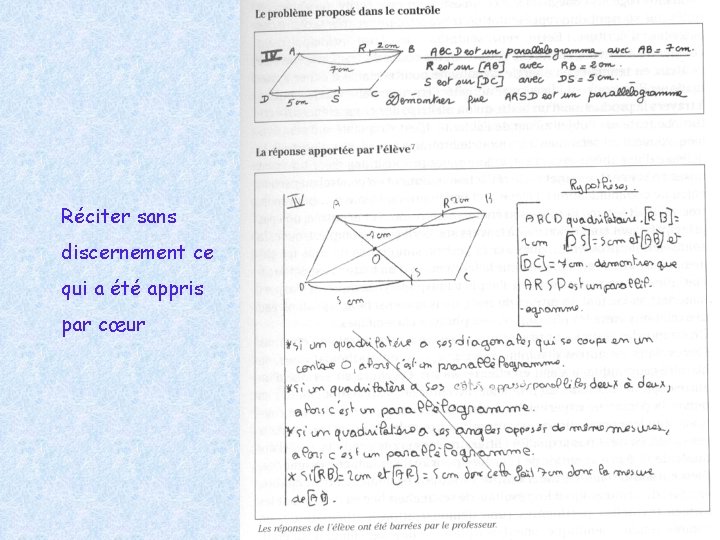 Réciter sans
discernement ce
qui a été appris
par cœur
Le problème proposé dans le contrôle
IV
A
R
2cm
B
7cm
D
5cm
S
C
ABCD est un parallélogramme avec AB = 7cm.
R est sur [AB] avec RB = 2cm.
S est sur [DC] avec DS = 5cm.
Démontrer que ARSD est un parallélogramme
La réponse apportée par l'élève7
IV
A
R
2cm
B
7cm
O
D
S
C
5 cm
Hypothèses.
ABCD quadrilataire. [RB]=
2cm [DS]=5cm et [AB] et
[DC]=7cm. demontres que
ARSD est un parallel-
ogramme.
* si un quadrilatère a ses diagonales, qui se coupe en un
centre O, alors c'est un parallélogramme.
* Si un quadrilatère a ses côtés opposés parallèles deux à deux,
alors c'est un parallélogramme.
* si un quadrilatère a ses angles opposés de même mesures,
alors c'est un parallélogramme.
* Si [RB]=2cm et [AR]=5cm donc cela fait 7cm donc la mesure
de [AB].
Les réponses de l'élève ont été barrées par le professeur.